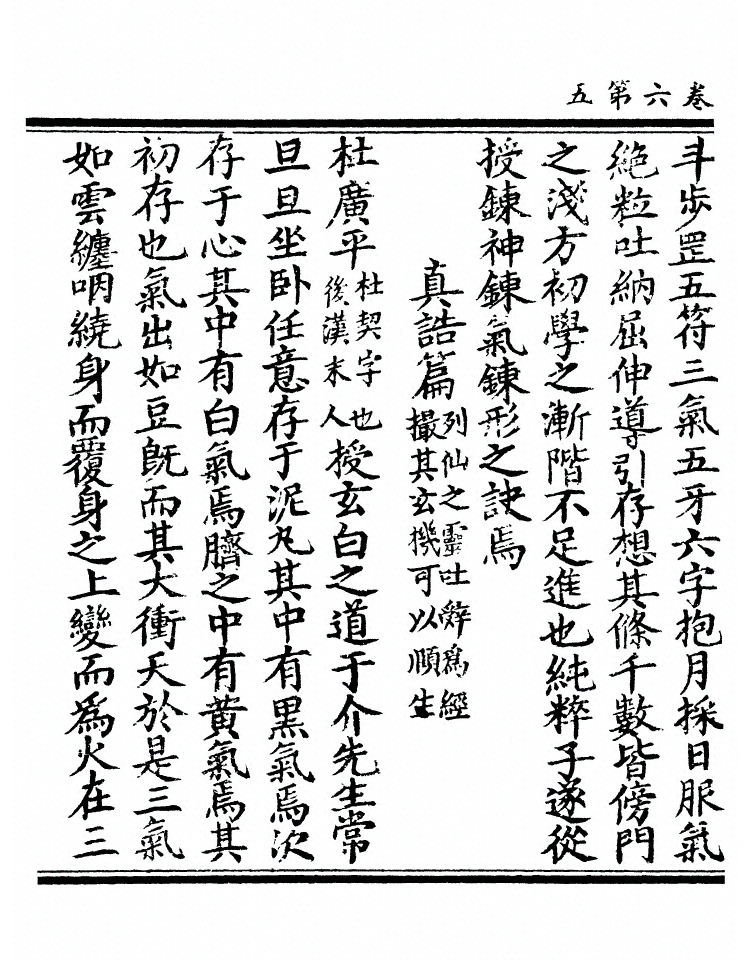 卷六第五
斗步罡五符三氣五牙六字抱月採日服氣
絶粒吐納屈伸導引存想其條千數皆傍門
之淺方初學之漸階不足進也純粹子遂從
授鍊神鍊氣鍊形之訣焉
真誥篇列仙之靈吐辤爲經撮其玄機可以順生
杜廣平杜契字也後漢末人授玄白之道于介先生常
旦旦坐卧任意存于泥丸其中有黒氣焉次
存于心其中有白氣焉臍之中有黄氣焉其
初存也氣出如豆旣而其大衝天於是三氣
如雲纏咽繞身而覆身之上變而爲火在三